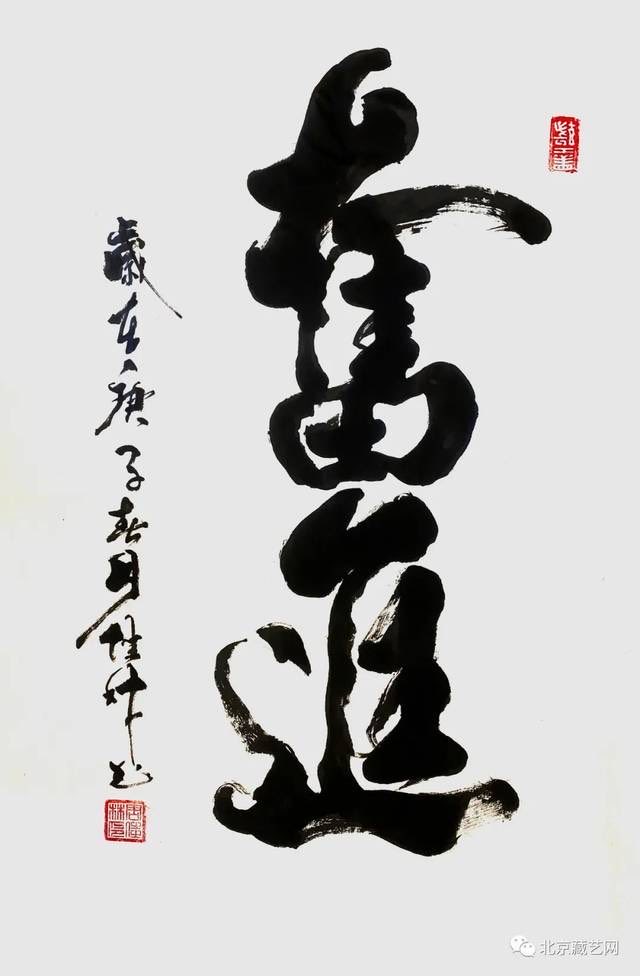 奮進
歲在庚子春月
北京藏艺网